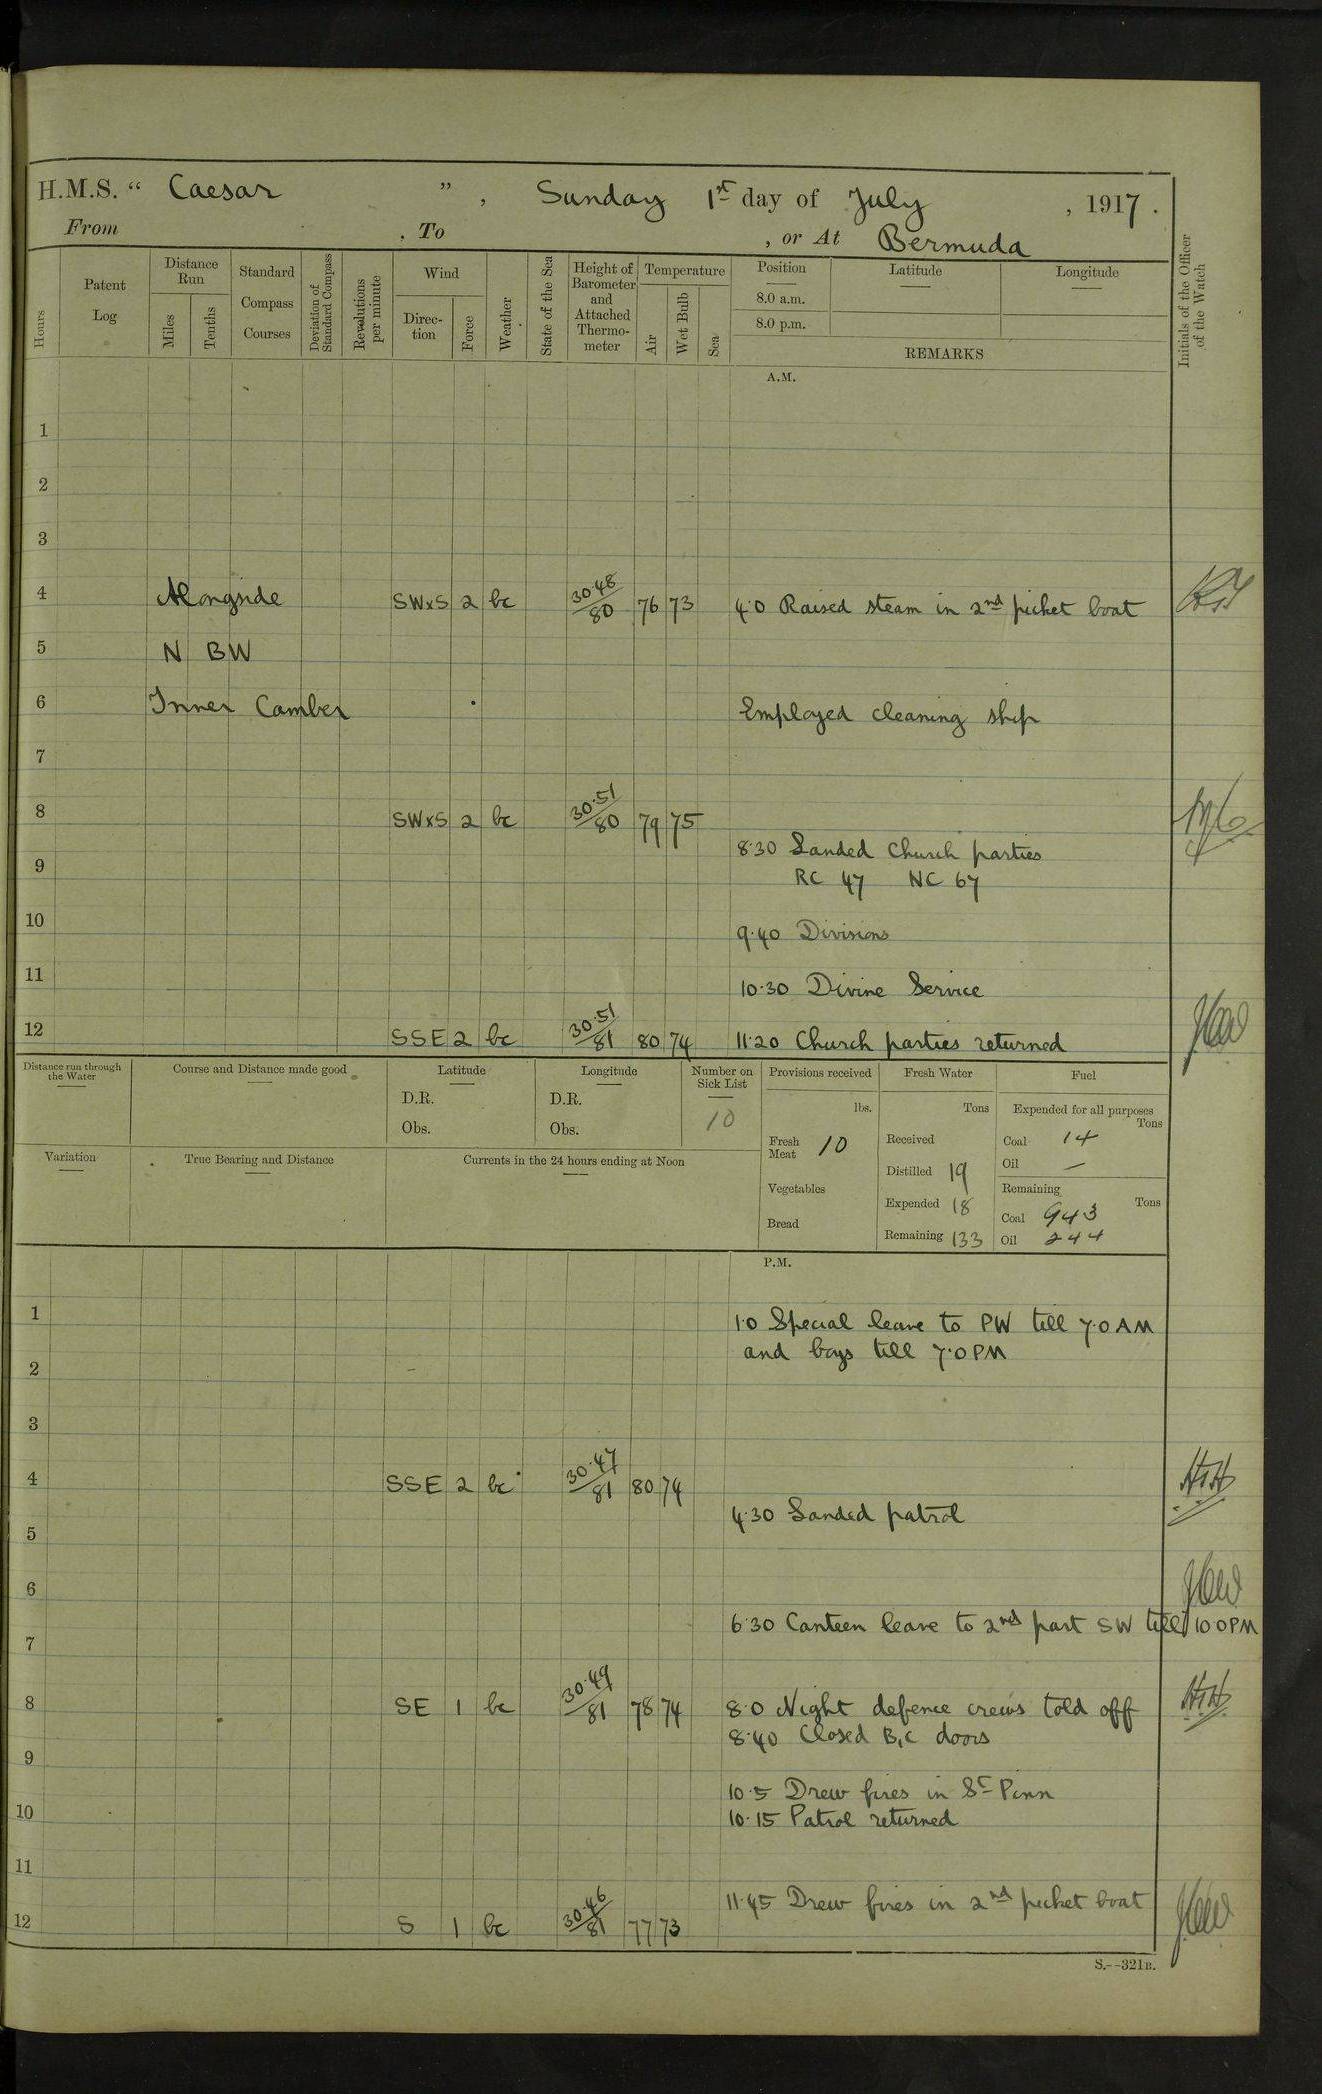 H.M.S. “ Caesar ” , Sunday 1st day of July , 1917 .
From . To , or At Bermuda
Hours
Patent Log
Distance Run
Miles
Tenths
Standard Compass Courses
Deviation of Standard Compass
Revolutions per minute
Wind
Direction
Force
Weather
State of the Sea
Height of Barometer and Attached Thermometer
Temperature
Air
Wet Bulb
Sea
Position
8.0 a.m.
8.0 p.m.
Latitude
Longitude
REMARKS
Initials of the Officer of the Watch
A.M.
1
2
3
4 Alongside SWxS 2 bc 30.48/80 76 73 4.0 Raised steam in 2nd picket boat
5 N BW
6 Inner Camber Employed cleaning ship
7
8 SWxS 2 bc 30.51/80 79 75
8.30 Landed Church parties
9 RC 47 NC 67
10 9.40 Divisions
11 10.30 Divine Service
12 SSE 2 bc 30.51/81 80 74 11.20 Church parties returned
Distance run through the Water
Course and Distance made good
Latitude
D.R.
Obs.
Longitude
D.R.
Obs.
Number on Sick List
10
Provisions received
lbs.
Fresh Meat 10
Vegetables
Bread
Fresh Water
Tons
Received
Distilled 19
Expended 18
Remaining 133
Fuel
Expended for all purposes
Tons
Coal 14
Oil —
Remaining
Tons
Coal 943
Oil 244
Variation
True Bearing and Distance
Currents in the 24 hours ending at Noon
P.M.
1 1.0 Special leave to PW till 7.0 AM
and boys till 7.0 PM
2
3
4 SSE 2 bc 30.47/81 80 74
4.30 Landed patrol
5
6
6.30 Canteen leave to 2nd part SW till 10.0 PM
7
8 SE 1 bc 30.49/81 78 74 8.0 Night defence crews told off
8.40 Closed B,C doors
9
10.5 Drew fires in St Pinn
10 10.15 Patrol returned
11
11.45 Drew fires in 2nd picket boat
12 S 1 bc 30.46/81 77 73
S.--321B.